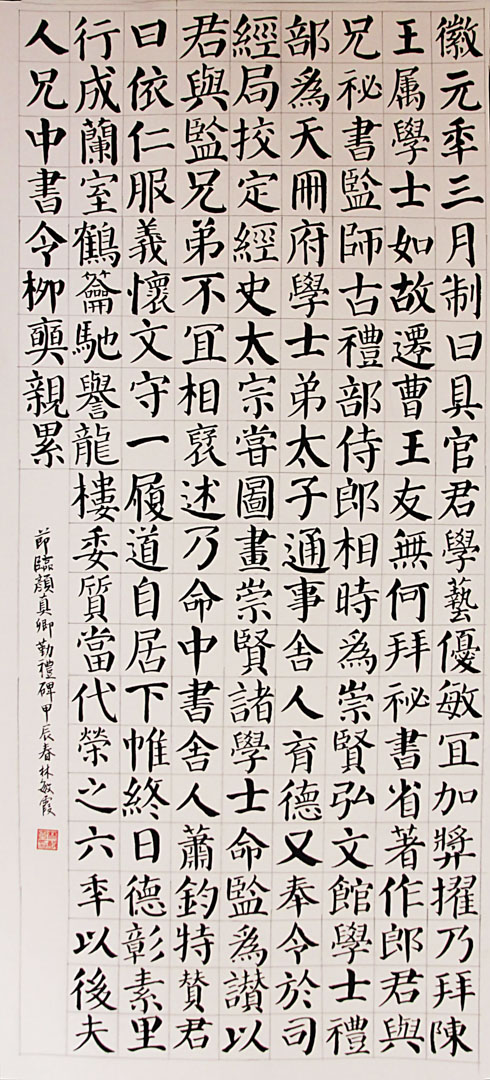 徽元秊三月制曰具官君學藝優敏冝加獎擢乃拜陳
王属學士如故遷曹王友無何拜祕書省著作郎君與
兄祕書監師古禮部侍郎相時為崇賢弘文館學士禮
部為天冊府學士弟太子通事舍人育德又奉令於司
經局挍定經史太宗嘗圖畫崇賢諸學士命監為讃以
君與監兄弟不冝相襃述乃命中書舍人蕭鈞特赞君
曰依仁服義懷文守一履道自居下帷終日德彰素里
行成蘭室鶴籥馳譽龍樓委質當代榮之六秊以後夫
人兄中書令柳奭親累
節臨顏真卿勤禮碑甲辰春林敏霞